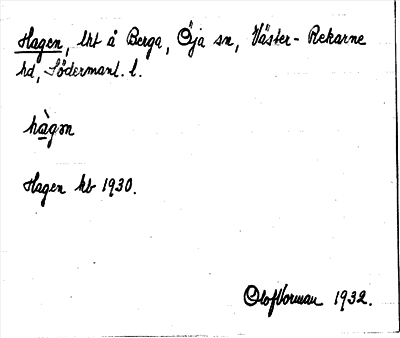 Hagen, lht å Berga, Öja sn, Väster-Rekarne
hd, Södermanl. l.
hàgɘn
Hagen kb 1930.
Olof Vorman 1932.